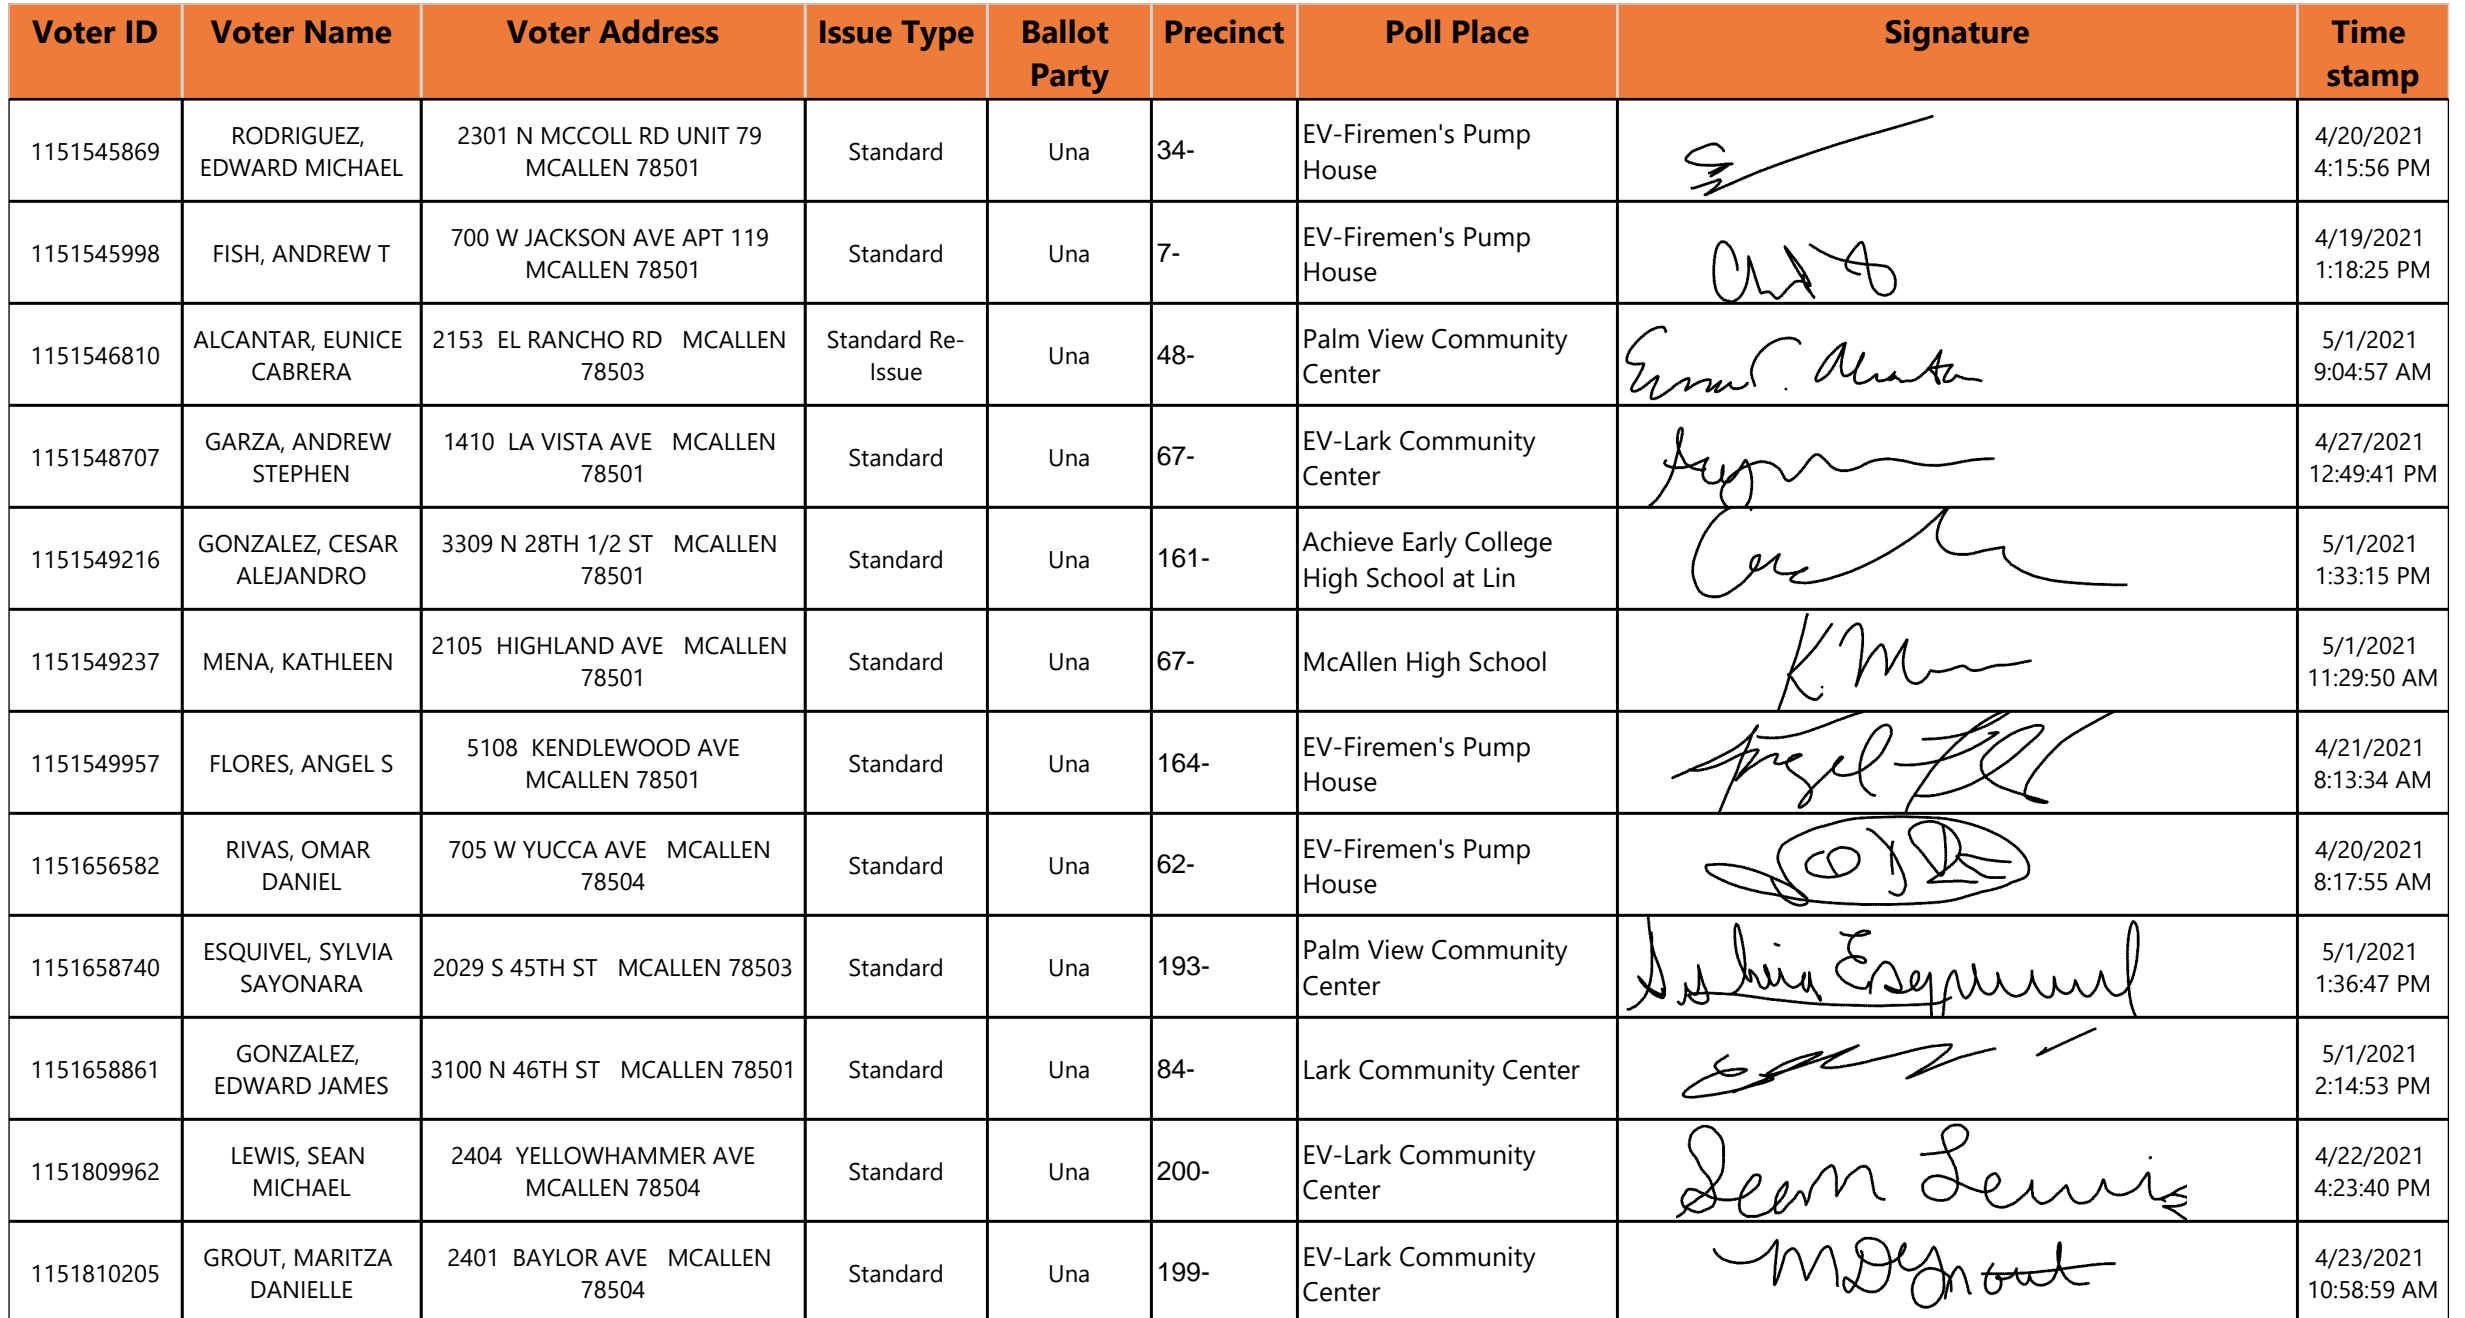 Voter ID Voter Name Voter Address Issue Type Ballot Party Precinct Poll Place Signature Time stamp
1151545869 RODRIGUEZ, EDWARD MICHAEL 2301 N MCCOLL RD UNIT 79 MCALLEN 78501 Standard Una 34- EV-Firemen's Pump House 4/20/2021 4:15:56 PM
1151545998 FISH, ANDREW T 700 W JACKSON AVE APT 119 MCALLEN 78501 Standard Una 7- EV-Firemen's Pump House 4/19/2021 1:18:25 PM
1151546810 ALCANTAR, EUNICE CABRERA 2153 EL RANCHO RD MCALLEN 78503 Standard Re-Issue Una 48- Palm View Community Center 5/1/2021 9:04:57 AM
1151548707 GARZA, ANDREW STEPHEN 1410 LA VISTA AVE MCALLEN 78501 Standard Una 67- EV-Lark Community Center 4/27/2021 12:49:41 PM
1151549216 GONZALEZ, CESAR ALEJANDRO 3309 N 28TH 1/2 ST MCALLEN 78501 Standard Una 161- Achieve Early College High School at Lin 5/1/2021 1:33:15 PM
1151549237 MENA, KATHLEEN 2105 HIGHLAND AVE MCALLEN 78501 Standard Una 67- McAllen High School 5/1/2021 11:29:50 AM
1151549957 FLORES, ANGEL S 5108 KENDLEWOOD AVE MCALLEN 78501 Standard Una 164- EV-Firemen's Pump House Angel 4/21/2021 8:13:34 AM
1151656582 RIVAS, OMAR DANIEL 705 W YUCCA AVE MCALLEN 78504 Standard Una 62- EV-Firemen's Pump House 4/20/2021 8:17:55 AM
1151658740 ESQUIVEL, SYLVIA SAYONARA 2029 S 45TH ST MCALLEN 78503 Standard Una 193- Palm View Community Center 5/1/2021 1:36:47 PM
1151658861 GONZALEZ, EDWARD JAMES 3100 N 46TH ST MCALLEN 78501 Standard Una 84- Lark Community Center 5/1/2021 2:14:53 PM
1151809962 LEWIS, SEAN MICHAEL 2404 YELLOWHAMMER AVE MCALLEN 78504 Standard Una 200- EV-Lark Community Center Sean Lewis 4/22/2021 4:23:40 PM
1151810205 GROUT, MARITZA DANIELLE 2401 BAYLOR AVE MCALLEN 78504 Standard Una 199- EV-Lark Community Center MDGrout 4/23/2021 10:58:59 AM